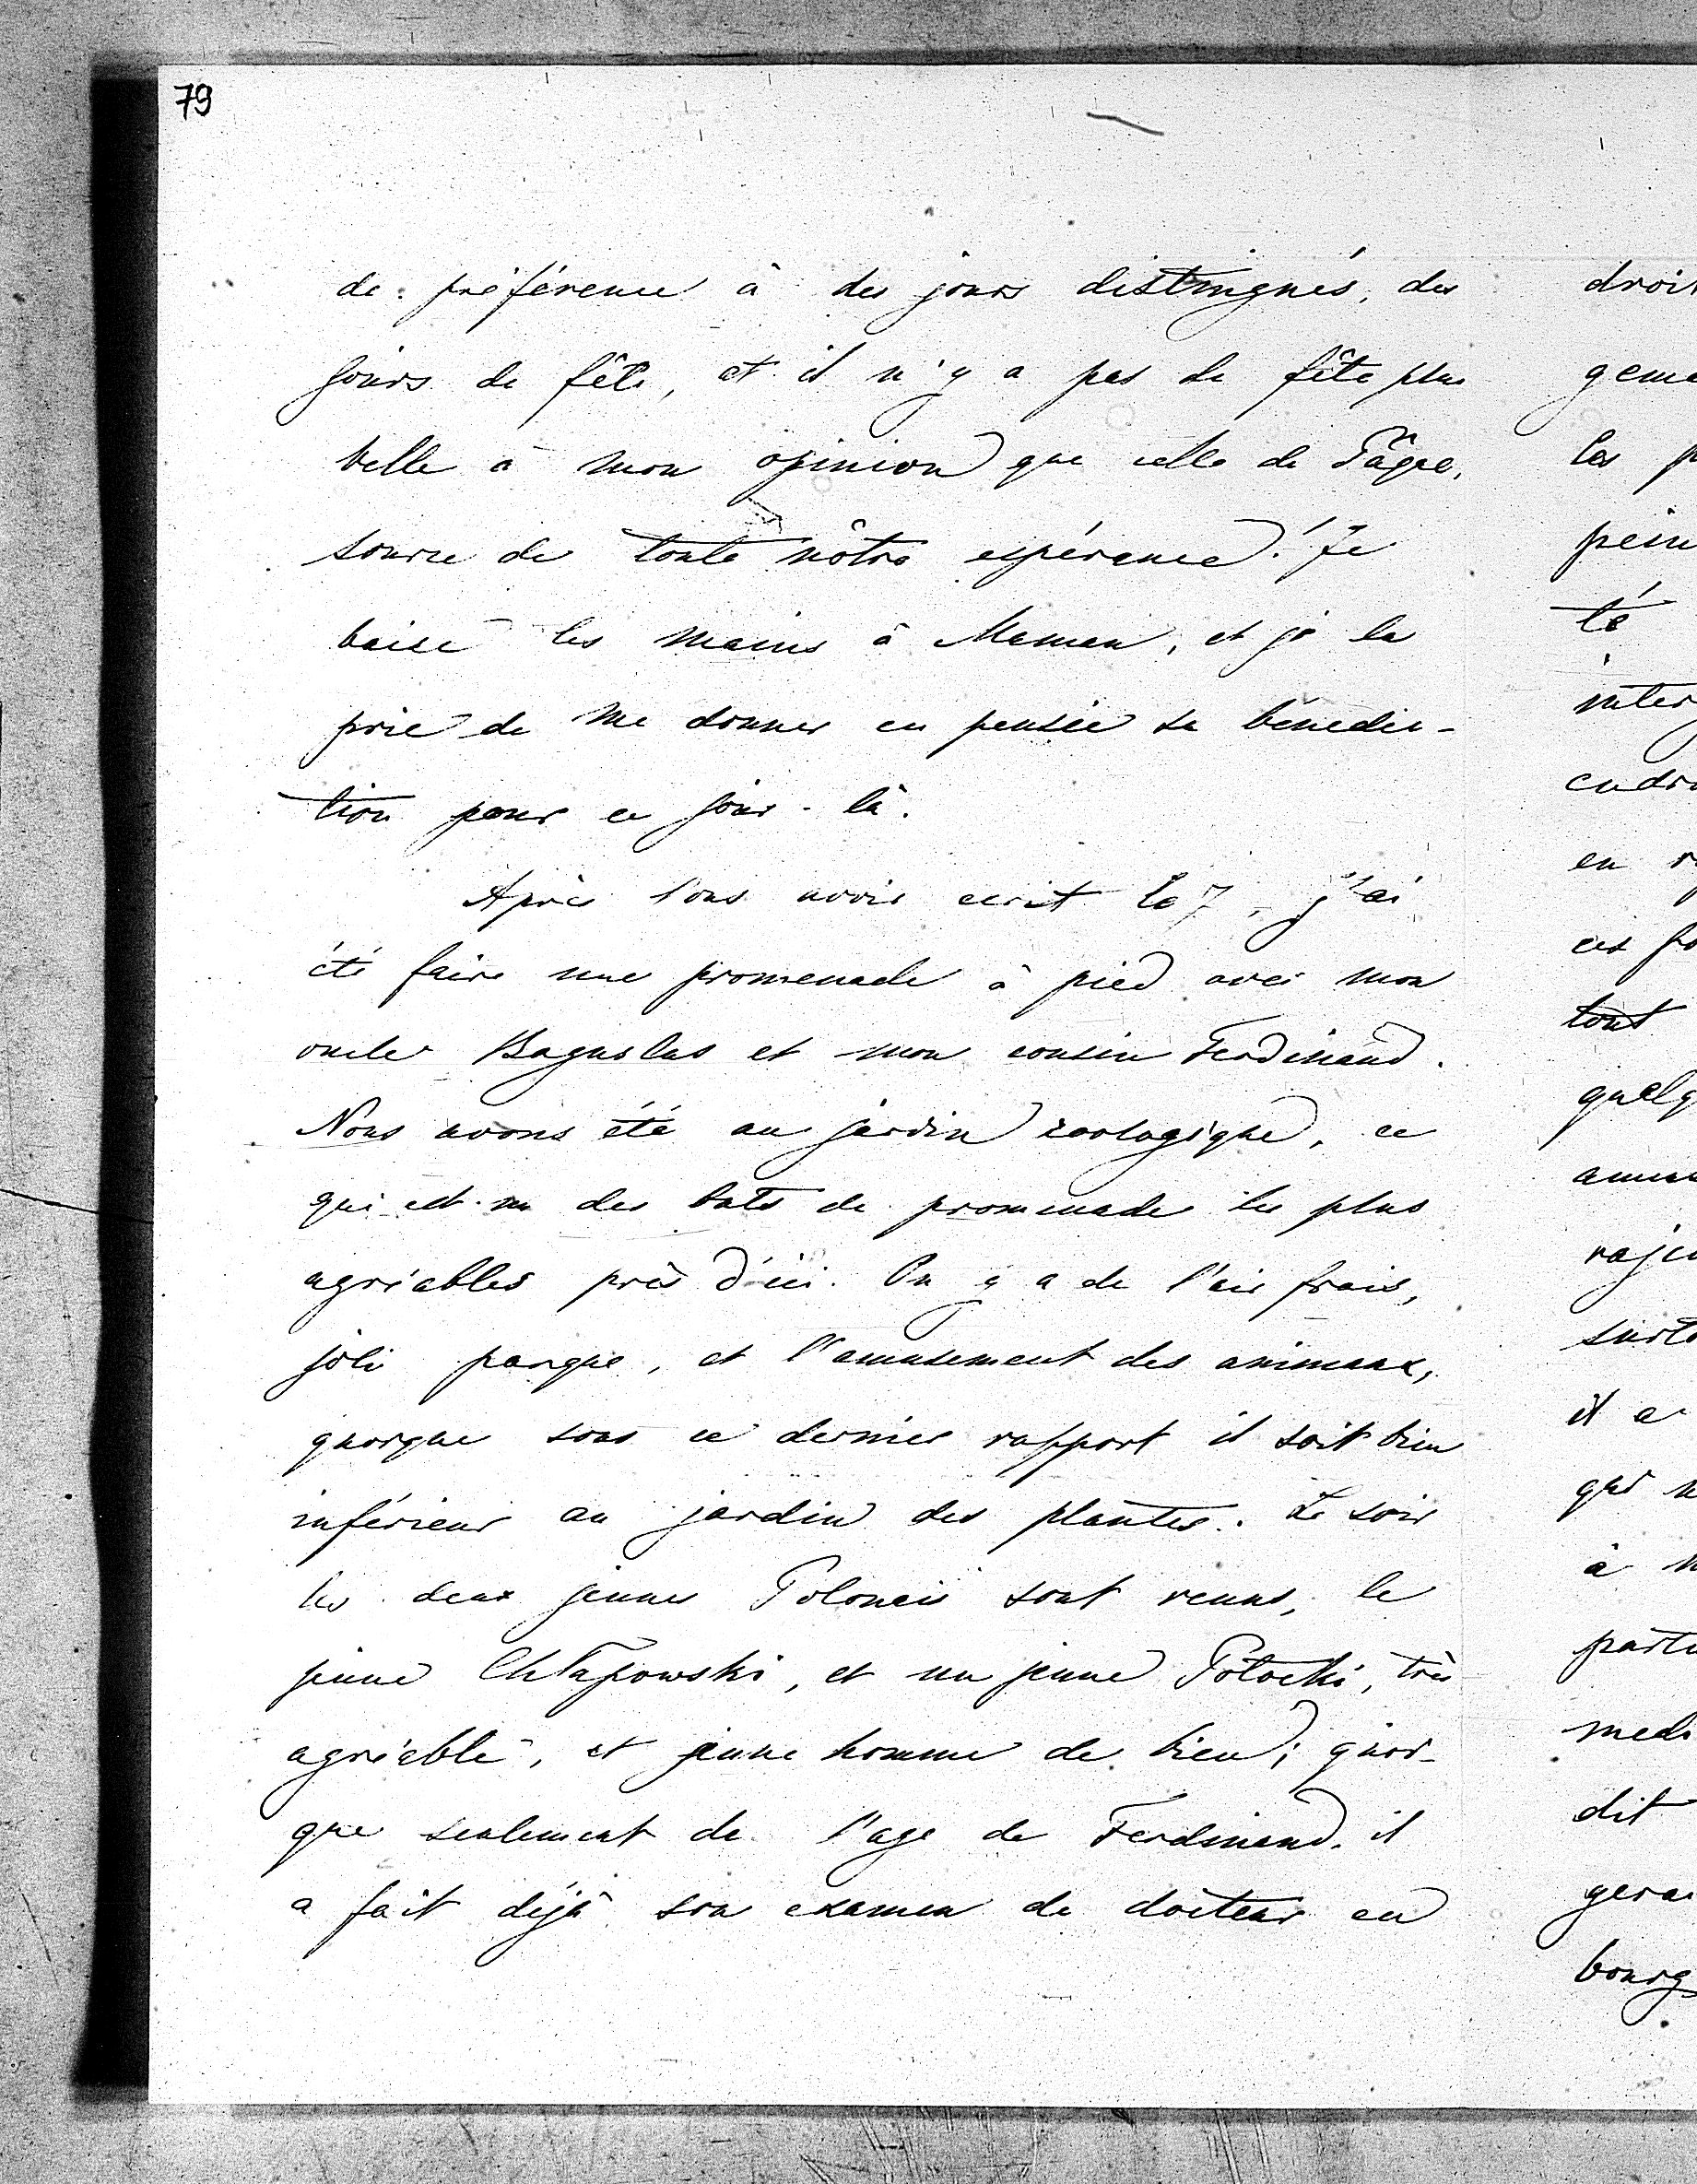 79
de préférence à des jours distingués, des
jours de fête, et il n'y a pas de fête plus
belle à mon opinion que celle de Pâque,
source de toute nôtre espérance! Je
baise les mains à Maman, et je la
prie de me donner en pensée sa bénédic-
tion pour ce jour-là.
Après Vous avoir ecrit le 7, j'ai
été faire une promenade à pied avec mon
oncle Boguslas et mon cousin Ferdinand.
Nous avons été au jardin zoologique, ce
qui est un des buts de promenade les plus
agréables près d'ici. On y a de l'air frais,
joli parque, et l'amusement des animaux,
quoique sous ce dernier rapport il soit bien
inférieur au jardin des plantes. Le soir
les deux jeunes Polonais sont venus, le
jeune Chłapowski, et un jeune Potocki, très
agréable, et jeune homme de bien; quoi-
que seulement de l'age de Ferdinand, il
a fait déjà son examen de docteur en
droit
les p
té
en r
tout
quelq
it a
qui n
à n
dit
bourg